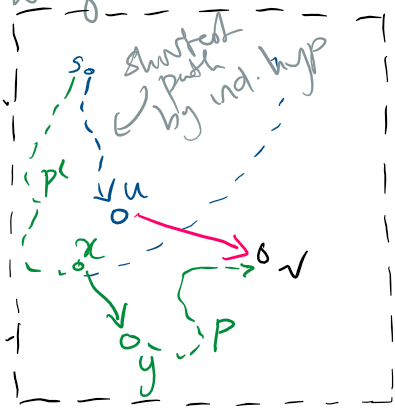 s
shortest
path
by ind. hyp
u
p'
x
v
y
P